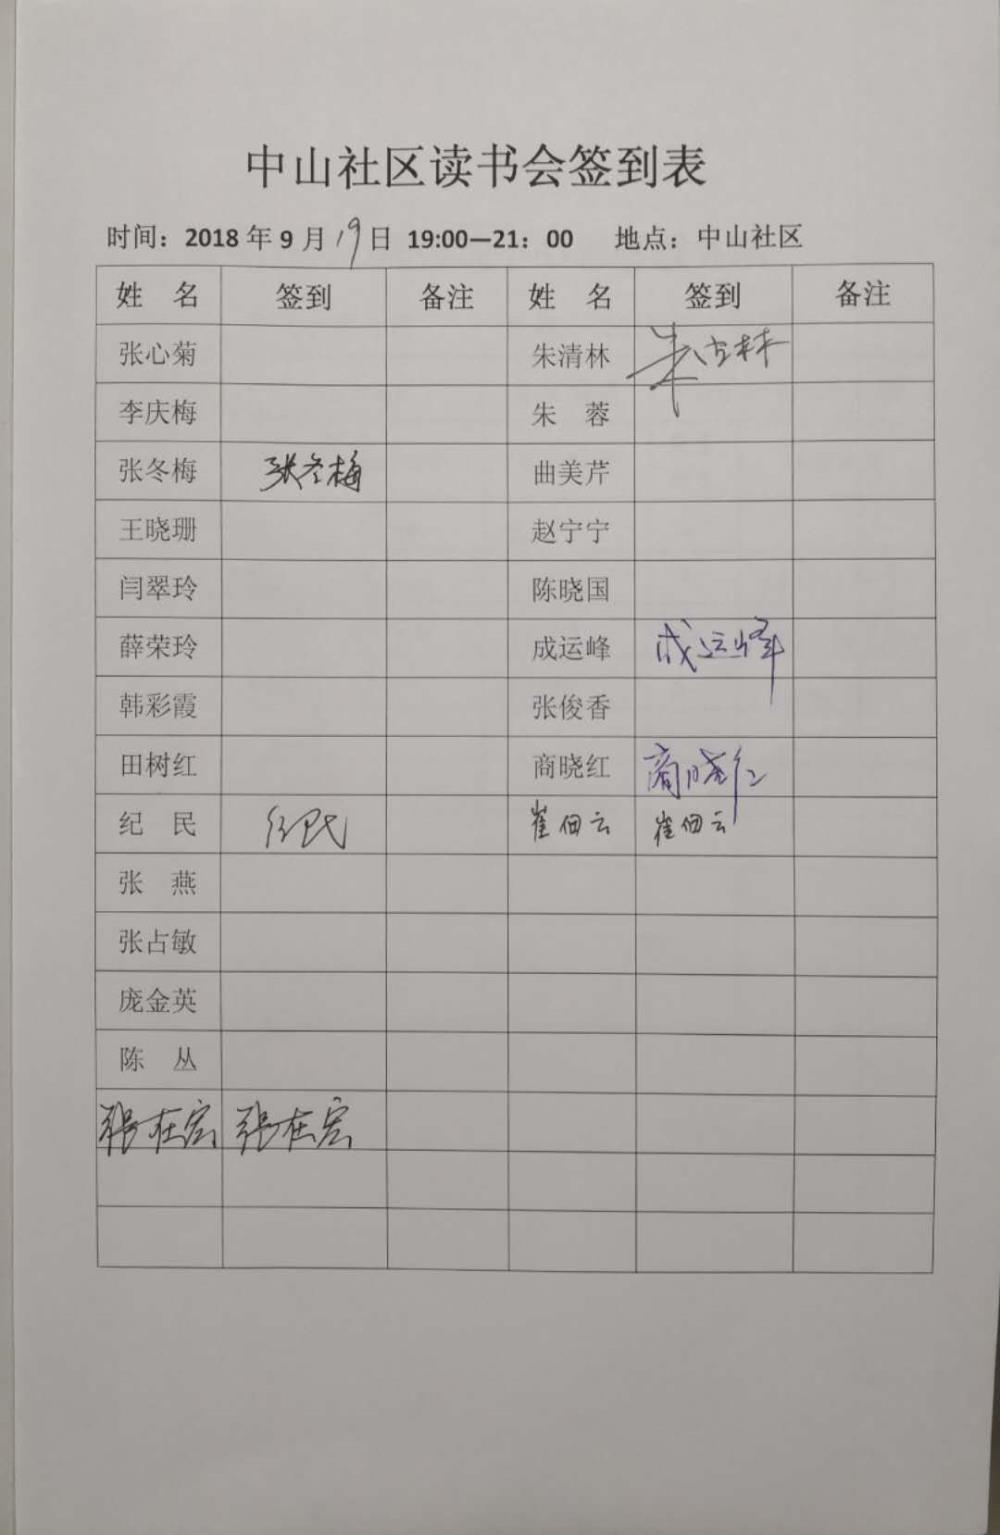 中山社区读书会签到表
时间：2018 年 9 月 19 日 19:00—21：00 地点：中山社区
姓 名 签到 备注 姓 名 签到 备注
张心菊 朱清林 朱清林
李庆梅 朱 蓉
张冬梅 张冬梅 曲美芹
王晓珊 赵宁宁
闫翠玲 陈晓国
薛荣玲 成运峰 成运峰
韩彩霞 张俊香
田树红 商晓红 商晓红
纪 民 纪民 崔佃云 崔佃云
张 燕
张占敏
庞金英
陈 丛
张在宏 张在宏